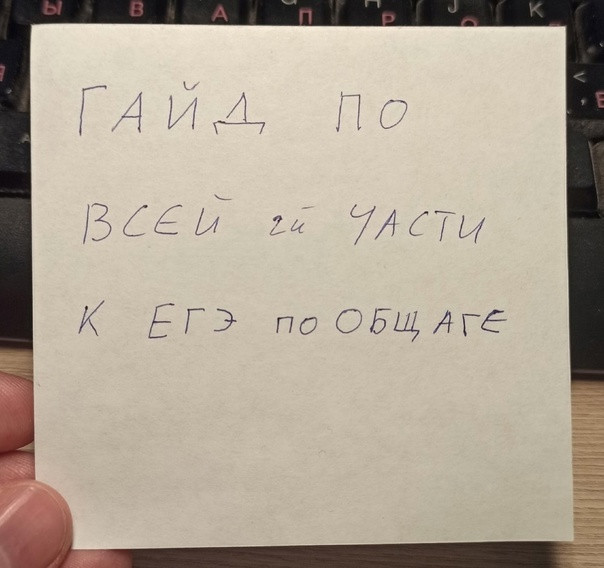 Ы В А П Р О К
ГАЙД ПО
ВСЕЙ 2й ЧАСТИ
К ЕГЭ по ОБЩАГЕ